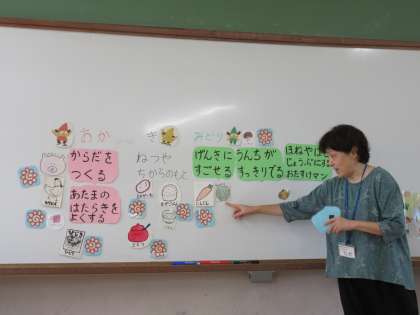 あか
からだを
つくる
あたまの
はたらきを
よくする
き
ねつや
ちからのもと
みどり
げんきに
すごせる
うんちが
すっきりでる
ほねやは
じょうぶにする
おたすけマン
にんじん